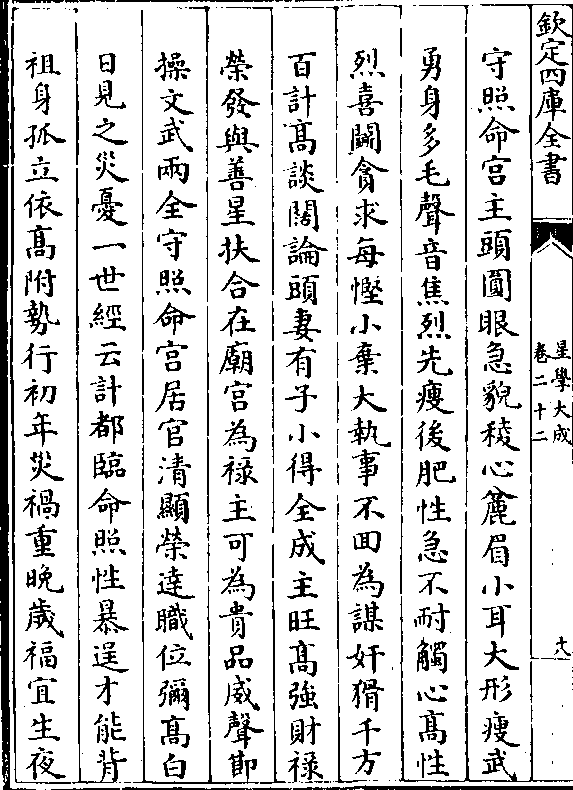 欽定四庫全書
星學大成
卷二十二
十八
守照命宫主頭圎眼急貌稜心麄眉小耳大形瘦武
勇身多毛聲音焦烈先瘦後肥性急不耐觸心髙性
烈喜鬭貪求每慳小棄大執事不回為謀奸猾千方
百計髙談闊論頭妻有子小得全成主旺髙強財禄
榮發與善星扶合在廟宫為禄主可為貴品威聲節
操文武兩全守照命宫居官清顯榮達職位彌髙白
日見之災憂一世經云計都臨命照性暴逞才能背
祖身孤立依髙附勢行初年災禍重晚歲福宜生夜